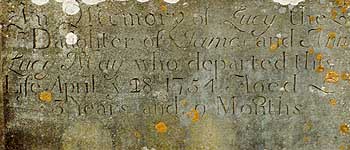 In Memory of Lucy the
Daughter of James and Ann
Lucy May who departed this
Life April 28 1754 Aged
3 Years and 9 Months